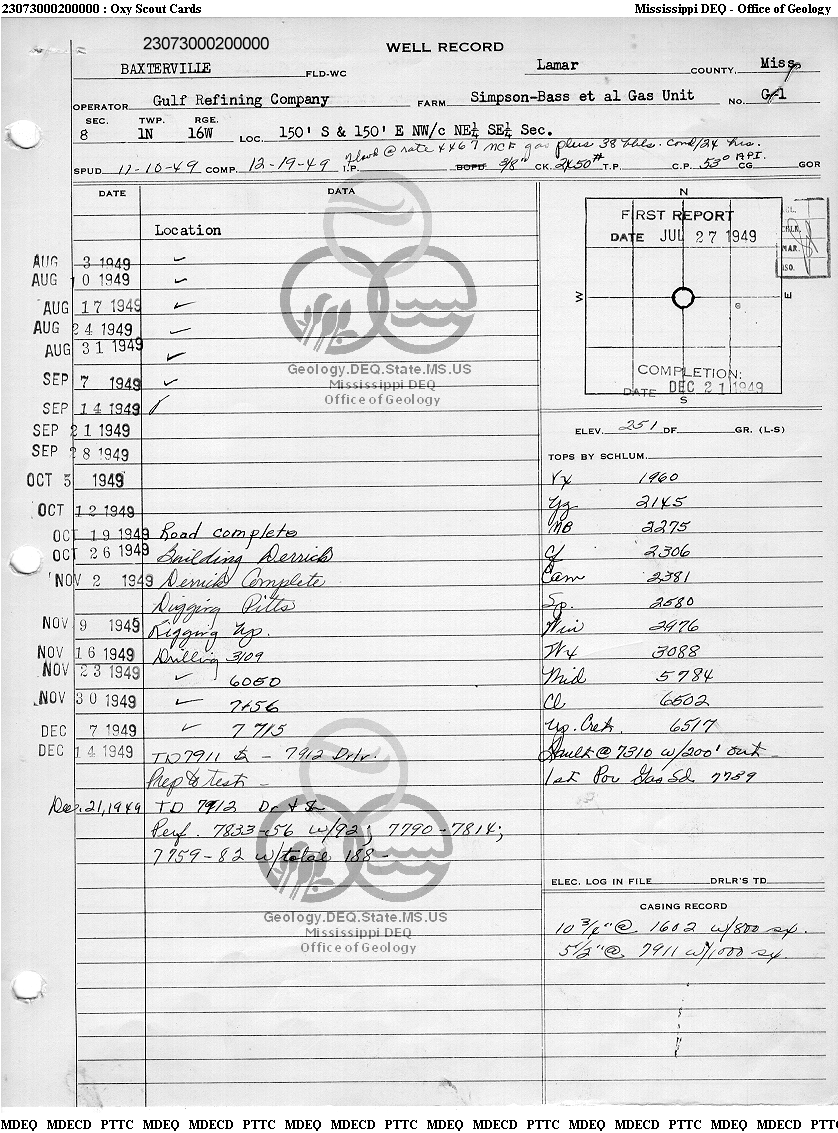 23073000200000 : Oxy Scout Cards
Mississippi DEQ - Office of Geology
23073000200000
WELL RECORD
BAXTERVILLE FLD-WC Lamar COUNTY, Miss.
OPERATOR Gulf Refining Company FARM Simpson-Bass et al Gas Unit No. G-1
SEC. TWP. RGE.
8 1N 16W LOC. 150' S & 150' E NW/c NE¼ SE¼ Sec.
flowed @ rate 4467 MCF gas plus 38 bbls. cond/24 hrs.
SPUD 11-10-49 COMP. 12-19-49 I.P. BOPD 3/8" CK. 2450# T.P. C.P. 53° API. CG GOR
DATE DATA
Location
AUG 3 1949 ✓
AUG 10 1949 ✓
AUG 17 1949 ✓
AUG 24 1949 ✓
AUG 31 1949 ✓
SEP 7 1949 ✓
SEP 14 1949 ✓
SEP 21 1949
SEP 28 1949
OCT 5 1949
OCT 12 1949
OCT 19 1949 Road complete
OCT 26 1949 Building Derrick
NOV 2 1949 Derrick Complete
Digging Pitts
NOV 9 1949 Rigging Up.
NOV 16 1949 Drilling 3109
NOV 23 1949 ✓ 6050
NOV 30 1949 ✓ 7456
DEC 7 1949 ✓ 7715
DEC 14 1949 TD 7911 - 7912 Drlr.
Prep to test -
Dec. 21, 1949 TD 7912 Dr +
Perf. 7833-56 w/92; 7790-7814;
7759-82 w/total 188 -
Geology.DEQ.State.MS.US
Mississippi DEQ
Office of Geology
Geology.DEQ.State.MS.US
Mississippi DEQ
Office of Geology
N
FIRST REPORT
DATE JUL 27 1949
W E
G
COMPLETION:
DATE DEC 21 1949
S
CHLK.
MAR.
ISO.
ELEV. 251 DF. GR. (L-S)
TOPS BY SCHLUM.
Vx 1960
Yg 2145
MB 2275
Cf 2306
Cam 2381
Sp. 2580
Win 2976
Wx 3088
Mid 5784
Cl 6502
Up. Cret. 6517
Fault @ 7310 w/200' out -
1st Por Gas Sd. 7759
ELEC. LOG IN FILE DRLR'S TD
CASING RECORD
10 3/4" @ 1602 w/800 sx.
5 1/2" @ 7911 w/1000 sx.
MDEQ MDECD PTTC MDEQ MDECD PTTC MDEQ MDECD PTTC MDEQ MDECD PTTC MDEQ MDECD PTTC MDEQ MDECD PTT